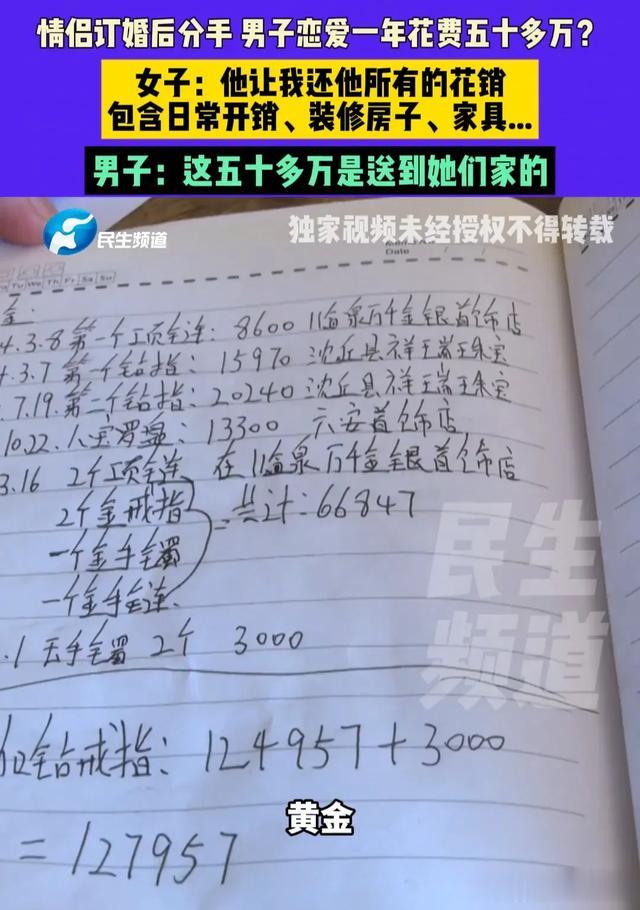 情侣订婚后分手 男子恋爱一年花费五十多万？
女子：他让我还他所有的花销
包含日常开销、装修房子、家具...
男子：这五十多万是送到她们家的
民生频道
独家视频未经授权不得转载
Date
Tu We Th Fr Sa Su
金：
4.3.8 第一个项链：8600 临泉万千金银首饰店
4.3.7 第一个钻指：15970 沈丘县祥瑞珠宝
.7.19. 第二个钻指：20240 沈丘县祥瑞珠宝
10.22. 八宝罗盘：13300 六安首饰店
3.16 2个项链 在临泉万千金银首饰店
2个金戒指 = 共计：66847
一个金手镯
一个金手链
.1 手镯 2个 3000
钻戒指：124957+3000
= 127957
民生
频道
黄金